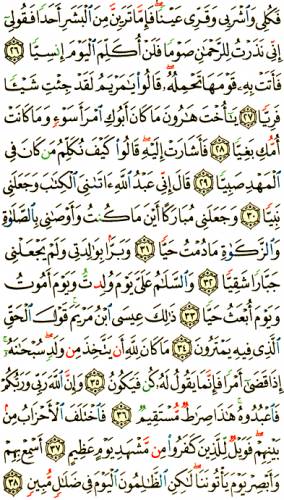 فَكُلِى وَٱشْرَبِى وَقَرِّى عَيْنًا ۖ فَإِمَّا تَرَيِنَّ مِنَ ٱلْبَشَرِ أَحَدًا فَقُولِىٓ
إِنِّى نَذَرْتُ لِلرَّحْمَٰنِ صَوْمًا فَلَنْ أُكَلِّمَ ٱلْيَوْمَ إِنسِيًّا ٢٦
فَأَتَتْ بِهِۦ قَوْمَهَا تَحْمِلُهُۥ ۖ قَالُوا۟ يَٰمَرْيَمُ لَقَدْ جِئْتِ شَيْـًٔا
فَرِيًّا ٢٧ يَٰٓأُخْتَ هَٰرُونَ مَا كَانَ أَبُوكِ ٱمْرَأَ سَوْءٍ وَمَا كَانَتْ
أُمُّكِ بَغِيًّا ٢٨ فَأَشَارَتْ إِلَيْهِ ۖ قَالُوا۟ كَيْفَ نُكَلِّمُ مَن كَانَ فِى
ٱلْمَهْدِ صَبِيًّا ٢٩ قَالَ إِنِّى عَبْدُ ٱللَّهِ ءَاتَىٰنِىَ ٱلْكِتَٰبَ وَجَعَلَنِى
نَبِيًّا ٣٠ وَجَعَلَنِى مُبَارَكًا أَيْنَ مَا كُنتُ وَأَوْصَٰنِى بِٱلصَّلَوٰةِ
وَٱلزَّكَوٰةِ مَا دُمْتُ حَيًّا ٣١ وَبَرًّۢا بِوَٰلِدَتِى وَلَمْ يَجْعَلْنِى
جَبَّارًا شَقِيًّا ٣٢ وَٱلسَّلَٰمُ عَلَىَّ يَوْمَ وُلِدتُّ وَيَوْمَ أَمُوتُ
وَيَوْمَ أُبْعَثُ حَيًّا ٣٣ ذَٰلِكَ عِيسَى ٱبْنُ مَرْيَمَ ۚ قَوْلَ ٱلْحَقِّ
ٱلَّذِى فِيهِ يَمْتَرُونَ ٣٤ مَا كَانَ لِلَّهِ أَن يَتَّخِذَ مِن وَلَدٍ ۖ سُبْحَٰنَهُۥٓ ۚ
إِذَا قَضَىٰٓ أَمْرًا فَإِنَّمَا يَقُولُ لَهُۥ كُن فَيَكُونُ ٣٥ وَإِنَّ ٱللَّهَ رَبِّى وَرَبُّكُمْ
فَٱعْبُدُوهُ ۚ هَٰذَا صِرَٰطٌ مُّسْتَقِيمٌ ٣٦ فَٱخْتَلَفَ ٱلْأَحْزَابُ مِنۢ
بَيْنِهِمْ ۖ فَوَيْلٌ لِّلَّذِينَ كَفَرُوا۟ مِن مَّشْهَدِ يَوْمٍ عَظِيمٍ ٣٧ أَسْمِعْ بِهِمْ
وَأَبْصِرْ يَوْمَ يَأْتُونَنَا ۖ لَٰكِنِ ٱلظَّٰلِمُونَ ٱلْيَوْمَ فِى ضَلَٰلٍ مُّبِينٍ ٣٨